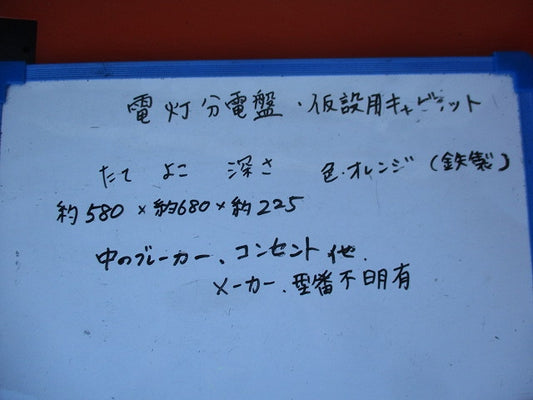 電灯分電盤・仮設用キャビネット
たて よこ 深さ 色・オレンジ (鉄製)
約580×約680×約225
中のブレーカー、コンセント他.
メーカー、型番不明有